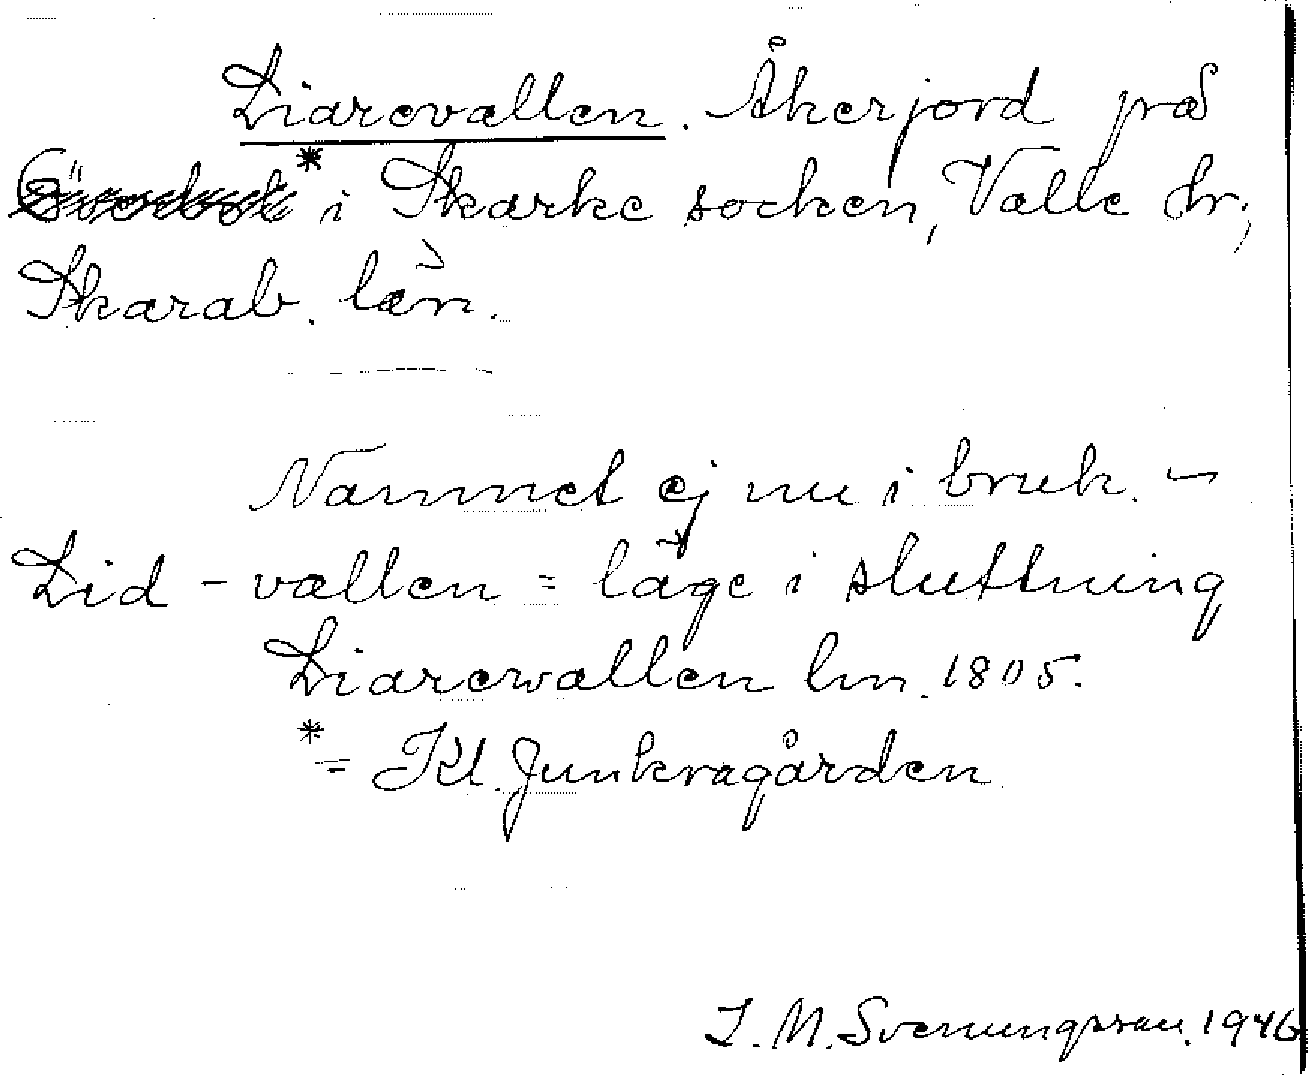 Liarevallen. Åkerjord på
* i Skarke socken, Valle hr;
Skarab. län.
Namnet ej nu i bruk. –
Lid - vallen = läge i sluttning
Liarewallen lm. 1805.
* = Kl. Junkragården
I. M. Svenungsson. 1946